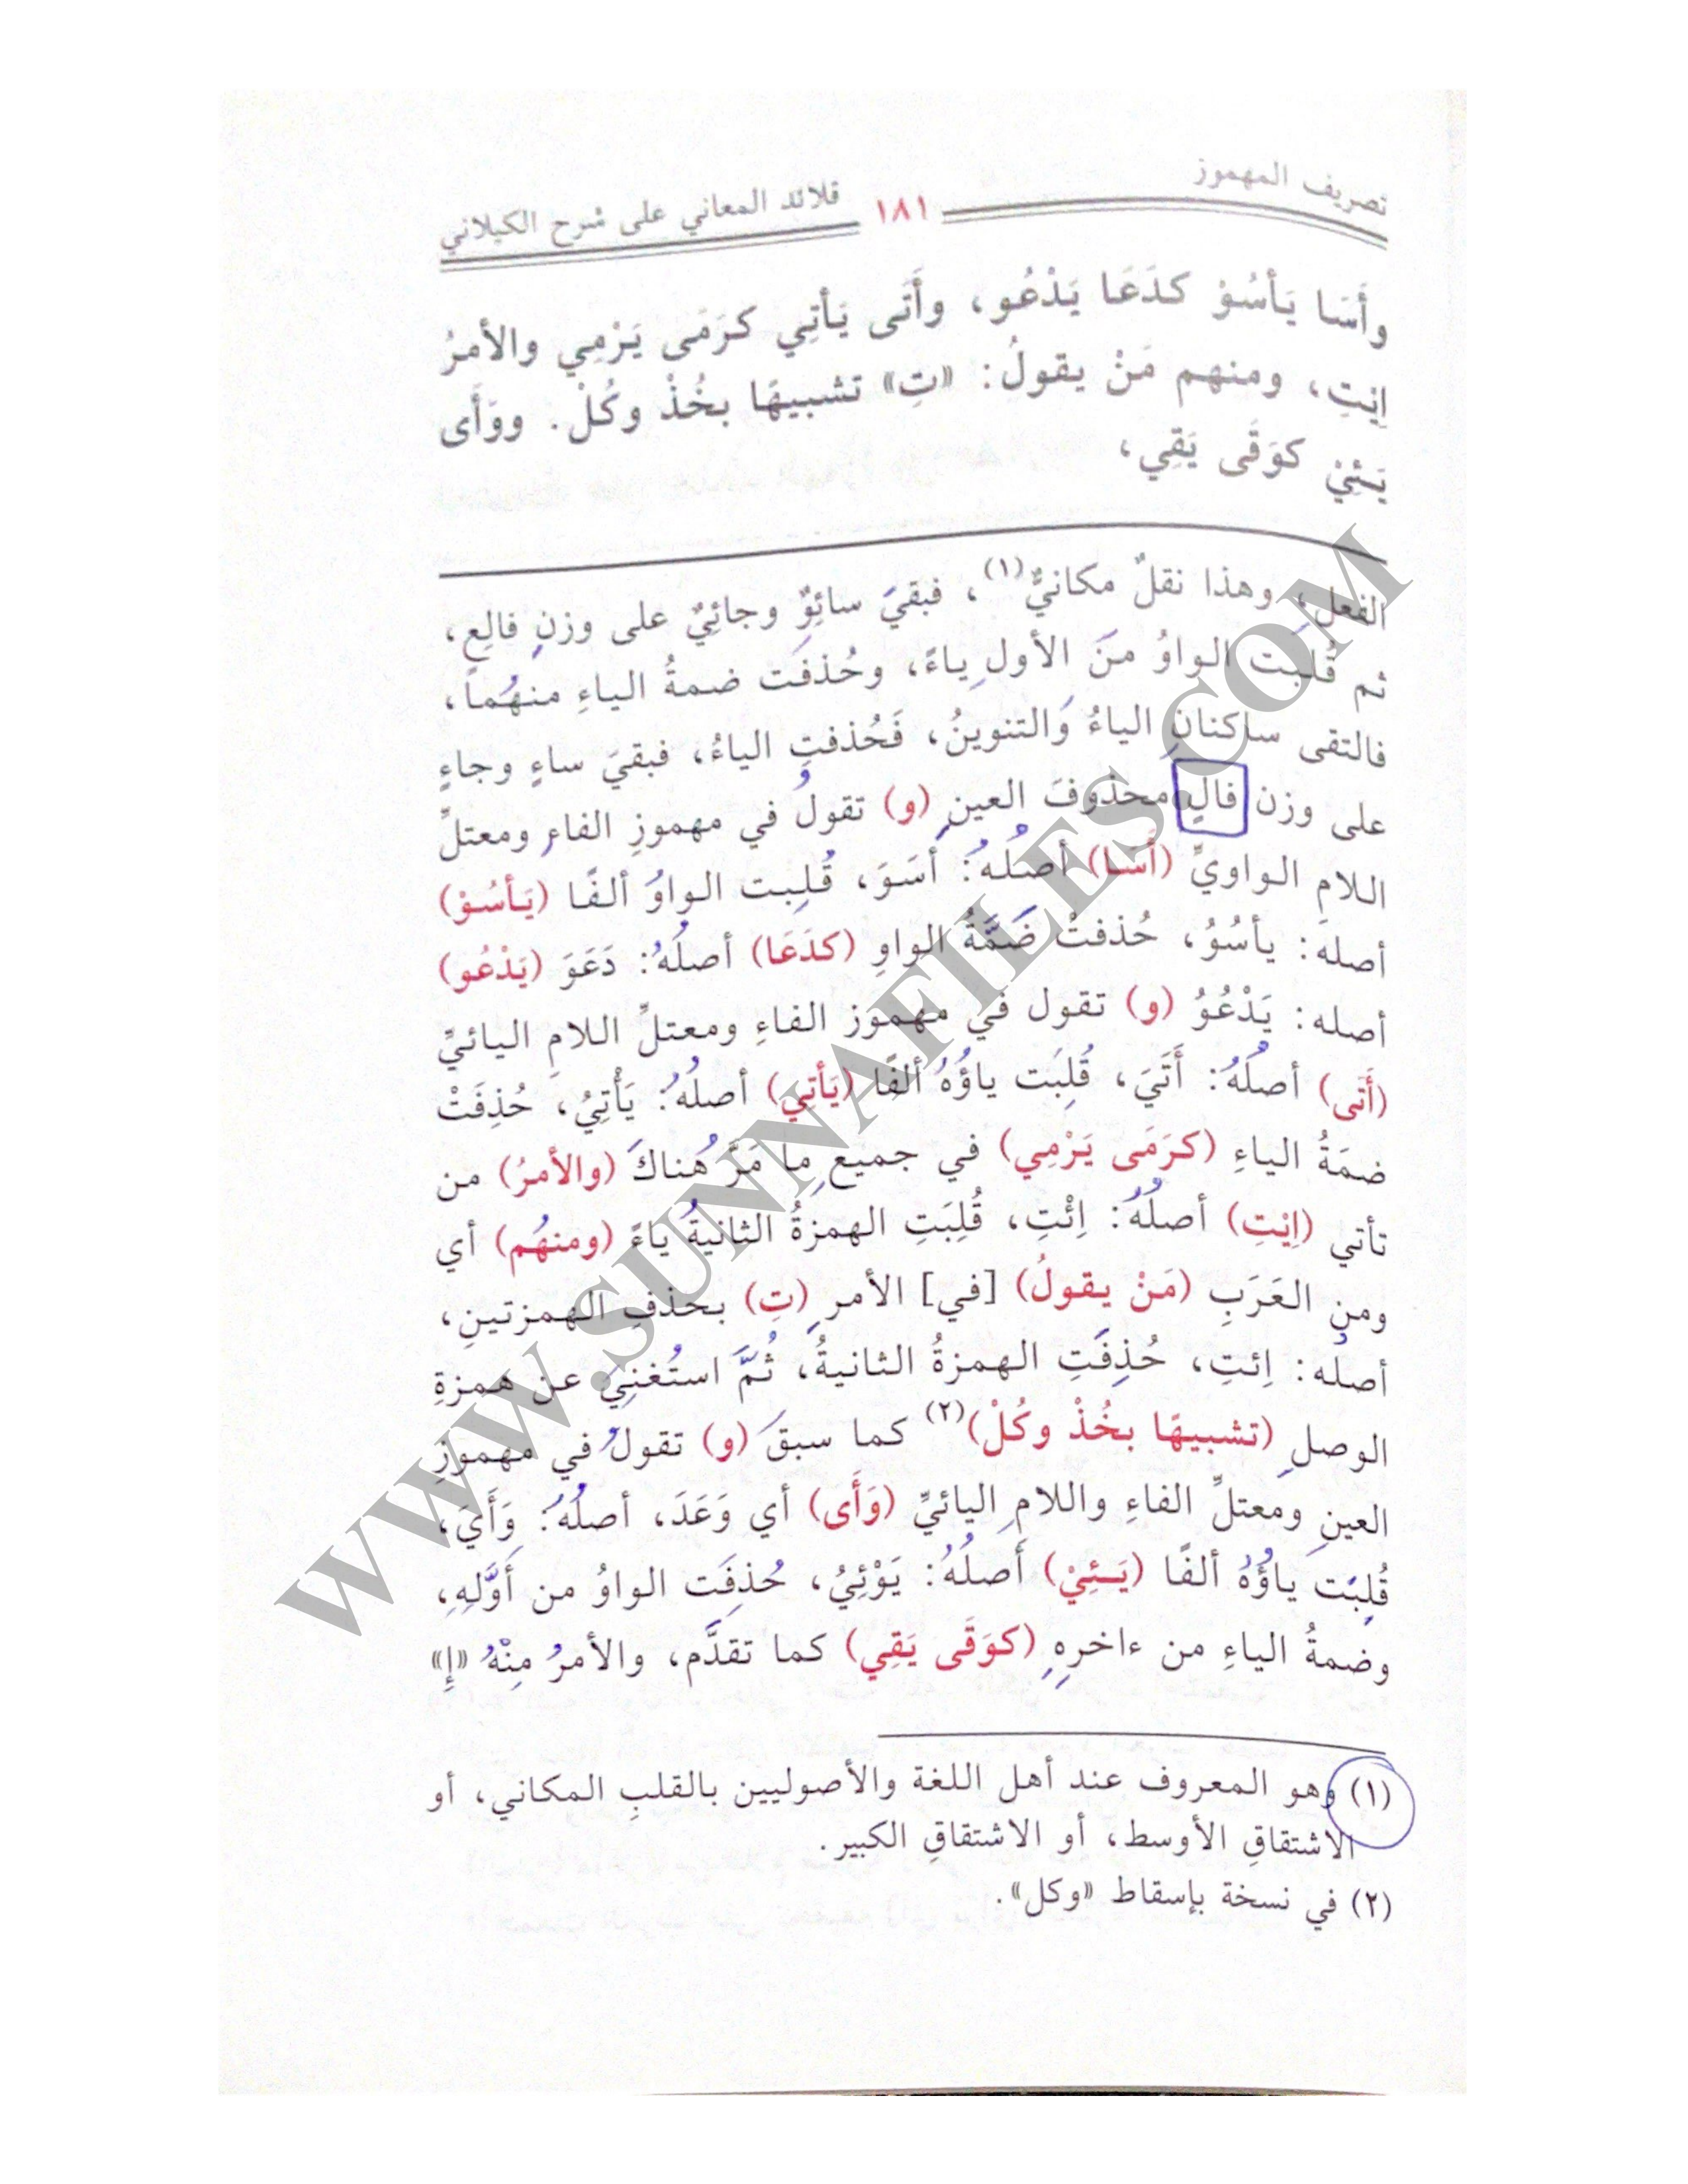 تصريف المهموز ١٨١ قلائد المعاني على شرح الكيلاني
وأَسَا يَأسُوْ كدَعَا يَدْعُو، وأَتَى يَأتِي كرَمَى يَرْمِي والأمرُ
اِيْتِ، ومنهم مَنْ يقولُ: «تِ» تشبيهًا بخُذْ وكُلْ. ووَأَى
يَئِيْ كوَقَى يَقِي،
الفعلِ، وهذا نقلٌ مكانيٌّ(١)، فبقيَ سائِوٌ وجائِيٌ على وزنِ فالِعٍ،
ثم قُلبَت الواوُ منَ الأولِ ياءً، وحُذفَت ضمةُ الياءِ منهُما،
فالتقى ساكنانِ الياءُ وَالتنوينُ، فَحُذفتِ الياءُ، فبقيَ ساءٍ وجاءٍ
على وزن فالٍ محذوفَ العينِ (و) تقولُ في مهموزِ الفاءِ ومعتلِّ
اللامِ الواويِّ (أَسَا) أصلُهُ: أَسَوَ، قُلِبت الواوُ ألفًا (يَأسُوْ)
أصلهَ: يأسُوُ، حُذفتُ ضَمَّةُ الواوِ (كدَعَا) أصلُهُ: دَعَوَ (يَدْعُو)
أصله: يَدْعُوُ (و) تقول في مهموز الفاءِ ومعتلِّ اللامِ اليائيِّ
(أَتَى) أصلُهُ: أَتَيَ، قُلِبَت ياؤُهُ ألفًا (يَأتِيَ) أصلُهُ: يَأْتِيُ، حُذِفَتْ
ضمَةُ الياءِ (كرَمَى يَرْمِي) في جميعِ مِا مَرَّ هُناكَ (والأمرُ) من
تأتي (اِيْتِ) أصلُهُ: اِئْتِ، قُلِبَتِ الهمزةُ الثانيةُ ياءً (ومنهُم) أي
ومنِ العَرَبِ (مَنْ يقولُ) [في] الأمرِ (تِ) بحذفِ الهمزتينِ،
أصلُه: اِئتِ، حُذِفَتِ الهمزةُ الثانيةُ، ثُمَّ استُغنِيَ عن همزةِ
الوصلِ (تشبيهًا بخُذْ وكُلْ)(٢) كما سبقَ (و) تقولُ في مهموزِ
العينِ ومعتلِّ الفاءِ واللامِ اليائيِّ (وَأَى) أي وَعَدَ، أصلُهُ: وَأَيَ،
قُلِبَت ياؤُهُ ألفًا (يَئِيْ) أَصلُهُ: يَوْئِيُ، حُذِفَت الواوُ من أَوَّلِهِ،
وضمةُ الياءِ من ءاخرِهِ (كوَقَى يَقِي) كما تقدَّم، والأمرُ مِنْهُ «إِ»
(١) وهو المعروف عند أهل اللغة والأصوليين بالقلبِ المكاني، أو
الاشتقاقِ الأوسط، أو الاشتقاقِ الكبير.
(٢) في نسخة بإسقاط «وكل».
WWW.SUNNAFILES.COM